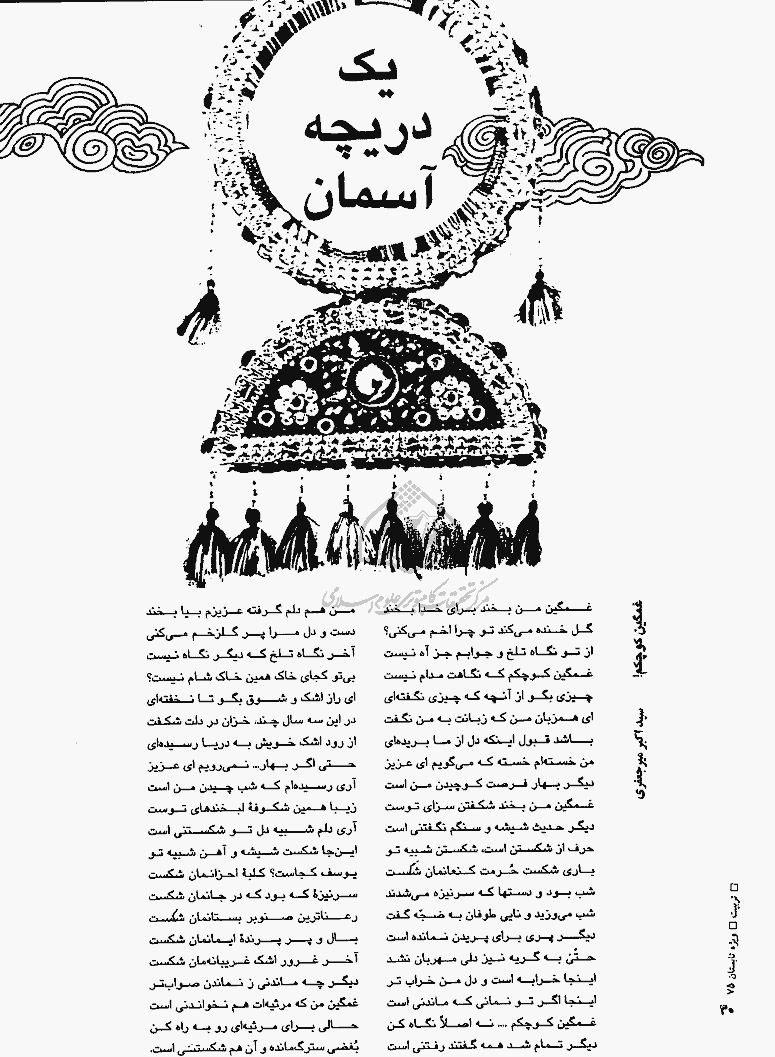 یک
دریچه
آسمان
غمگین کوچکم!
سید اکبر میرجعفری
غمگین من بخند برای خدا بخند
من هم دلم گرفته عزیزم بیا بخند
گل خنده می‌کند تو چرا اخم می‌کنی؟
دست و دل مرا پر گلزخم می‌کنی
از تو نگاه تلخ و جوابم جز آه نیست
آخر نگاه تلخ که دیگر نگاه نیست
غمگین کوچکم که نگاهت مدام نیست
بی‌تو کجای خاک همین خاک شام نیست؟
چیزی بگو از آنچه که چیزی نگفته‌ای
ای راز اشک و شوق بگو تا نخفته‌ای
ای همزبان من که زبانت به من نگفت
در این سه سال چند، خزان در دلت شکفت
باشد قبول اینکه دل از ما بریده‌ای
از رود اشک خویش به دریا رسیده‌ای
من خسته‌ام خسته که می‌گویم ای عزیز
حتی اگر بهار... نمی‌رویم ای عزیز
دیگر بهار فرصت کوچیدن من است
آری رسیده‌ام که شب چیدن من است
غمگین من بخند شکفتن سزای توست
زیبا همین شکوفهٔ لبخندهای توست
دیگر حدیث شیشه و سنگم نگفتنی است
آری دلم شبیه دل تو شکستنی است
حرف از شکستن است، شکستن شبیه تو
این‌جا شکست شیشه و آهن شبیه تو
باری شکست حُرمت کنعانمان شکست
یوسف کجاست؟ کلبهٔ احزانمان شکست
شب بود و دستها که سرنیزه می‌شدند
سرنیزهٔ که بود که در جانمان شکست
شب می‌وزید و نایی طوفان به ضجّه گفت
رعناترین صنوبر بستانمان شکست
دیگر پری برای پریدن نمانده است
بال و پر پرندهٔ ایمانمان شکست
حتّیٰ به گریه نیز دلی مهربان نشد
آخر غرور اشک غریبانه‌مان شکست
اینجا خرابه است و دل من خراب تر
دیگر چه ماندنی ز نماندن صواب‌تر
اینجا اگر تو نمانی که ماندنی است
غمگین من که مرثیه‌ات هم نخواندنی است
غمگین کوچکم .... نه اصلاً نگاه کن
حالی برای مرثیه‌ای رو به راه کن
دیگر تمام شد همه گفتند رفتنی است
بُغضی سترگ‌مانده و آن هم شکستنی است.
تربیت □ ویژه تابستان ۷۵